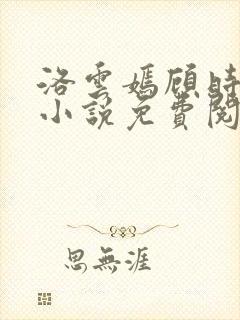 洛雲嫣顧時
小說免費閱
思無涯